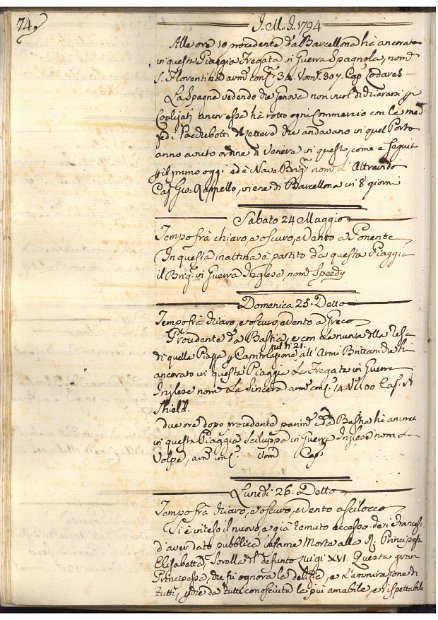 74.
I. M. I. 1794
Alle ore 10 procedente da Barcellona hà ancorato
in questa Piaggia Fregata di Guerra Spagnola, nom.
S. Florentina arm. con C. 34 Vom. 307 Cap.
La Spagna vedendo che Genova non vuol dichiararsi p
hà rotto ogni Commercio con la med.
ed i che andavano in quel Porto
anno avuto ordine di venire in questo, come è seguito
oggi ed è Nave nom.
Cap. viene di Barcellona in 8 giorni
Sabato 24 Maggio
Tempo frà chiaro, e oscuro, e vento a Ponente
In questa mattina è partito da questa Piaggia
il Brig. di Guerra Inglese nom. Speedy
Domenica 25. Detto
Tempo frà chiaro, e oscuro, e vento a Greco
Procedente da Bastia, e con la nuova della Resa
nel dì 21.
di quella Piazza, e Capitolazione all'Armi Britaniche hà
ancorato in questa Piaggia la Fregata di Guerra
Inglese nom. La Sincera arm. con C.
Shield.
due ore dopo procedente parim. da Bastia hà ancora
in questa Piaggia Sciluppo di Guerra Inglese nom. La
Volpe, arm. con C. Vom. Cap.
Lunedì 26. Detto
Tempo frà chiaro, e oscuro, e vento a Scilocco
Si è inteso il nuovo e già temuto eccesso dei Francesi
d'aver dato pubblica infame Morte alla R. Principessa
Elisabetta, Sorella del defunto Luigi XVI. Questa gran
Principessa, che fù ognora la delizia, e l'amirazione di
tutti, e da tutti conosciuta la più amabile, e rispettabile